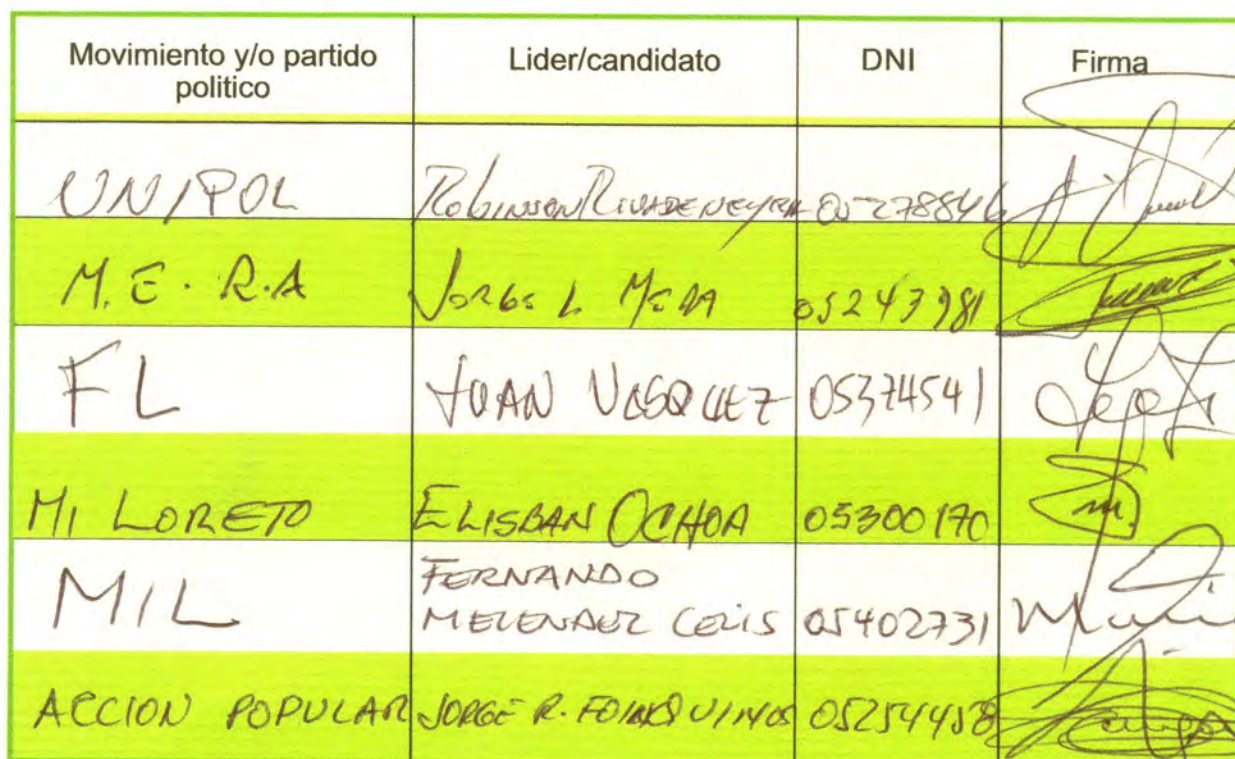 Movimiento y/o partido politico Lider/candidato DNI Firma
UNIPOL Robinson Rivadeneyra 05278846
M.E.R.A Jorge L Mera 05243981
FL JUAN VASQUEZ 05374541
MI LORETO ELISBAN OCHOA 05300170
MIL FERNANDO MELENDEZ CELIS 05402731
ACCION POPULAR JORGE R. 05254458